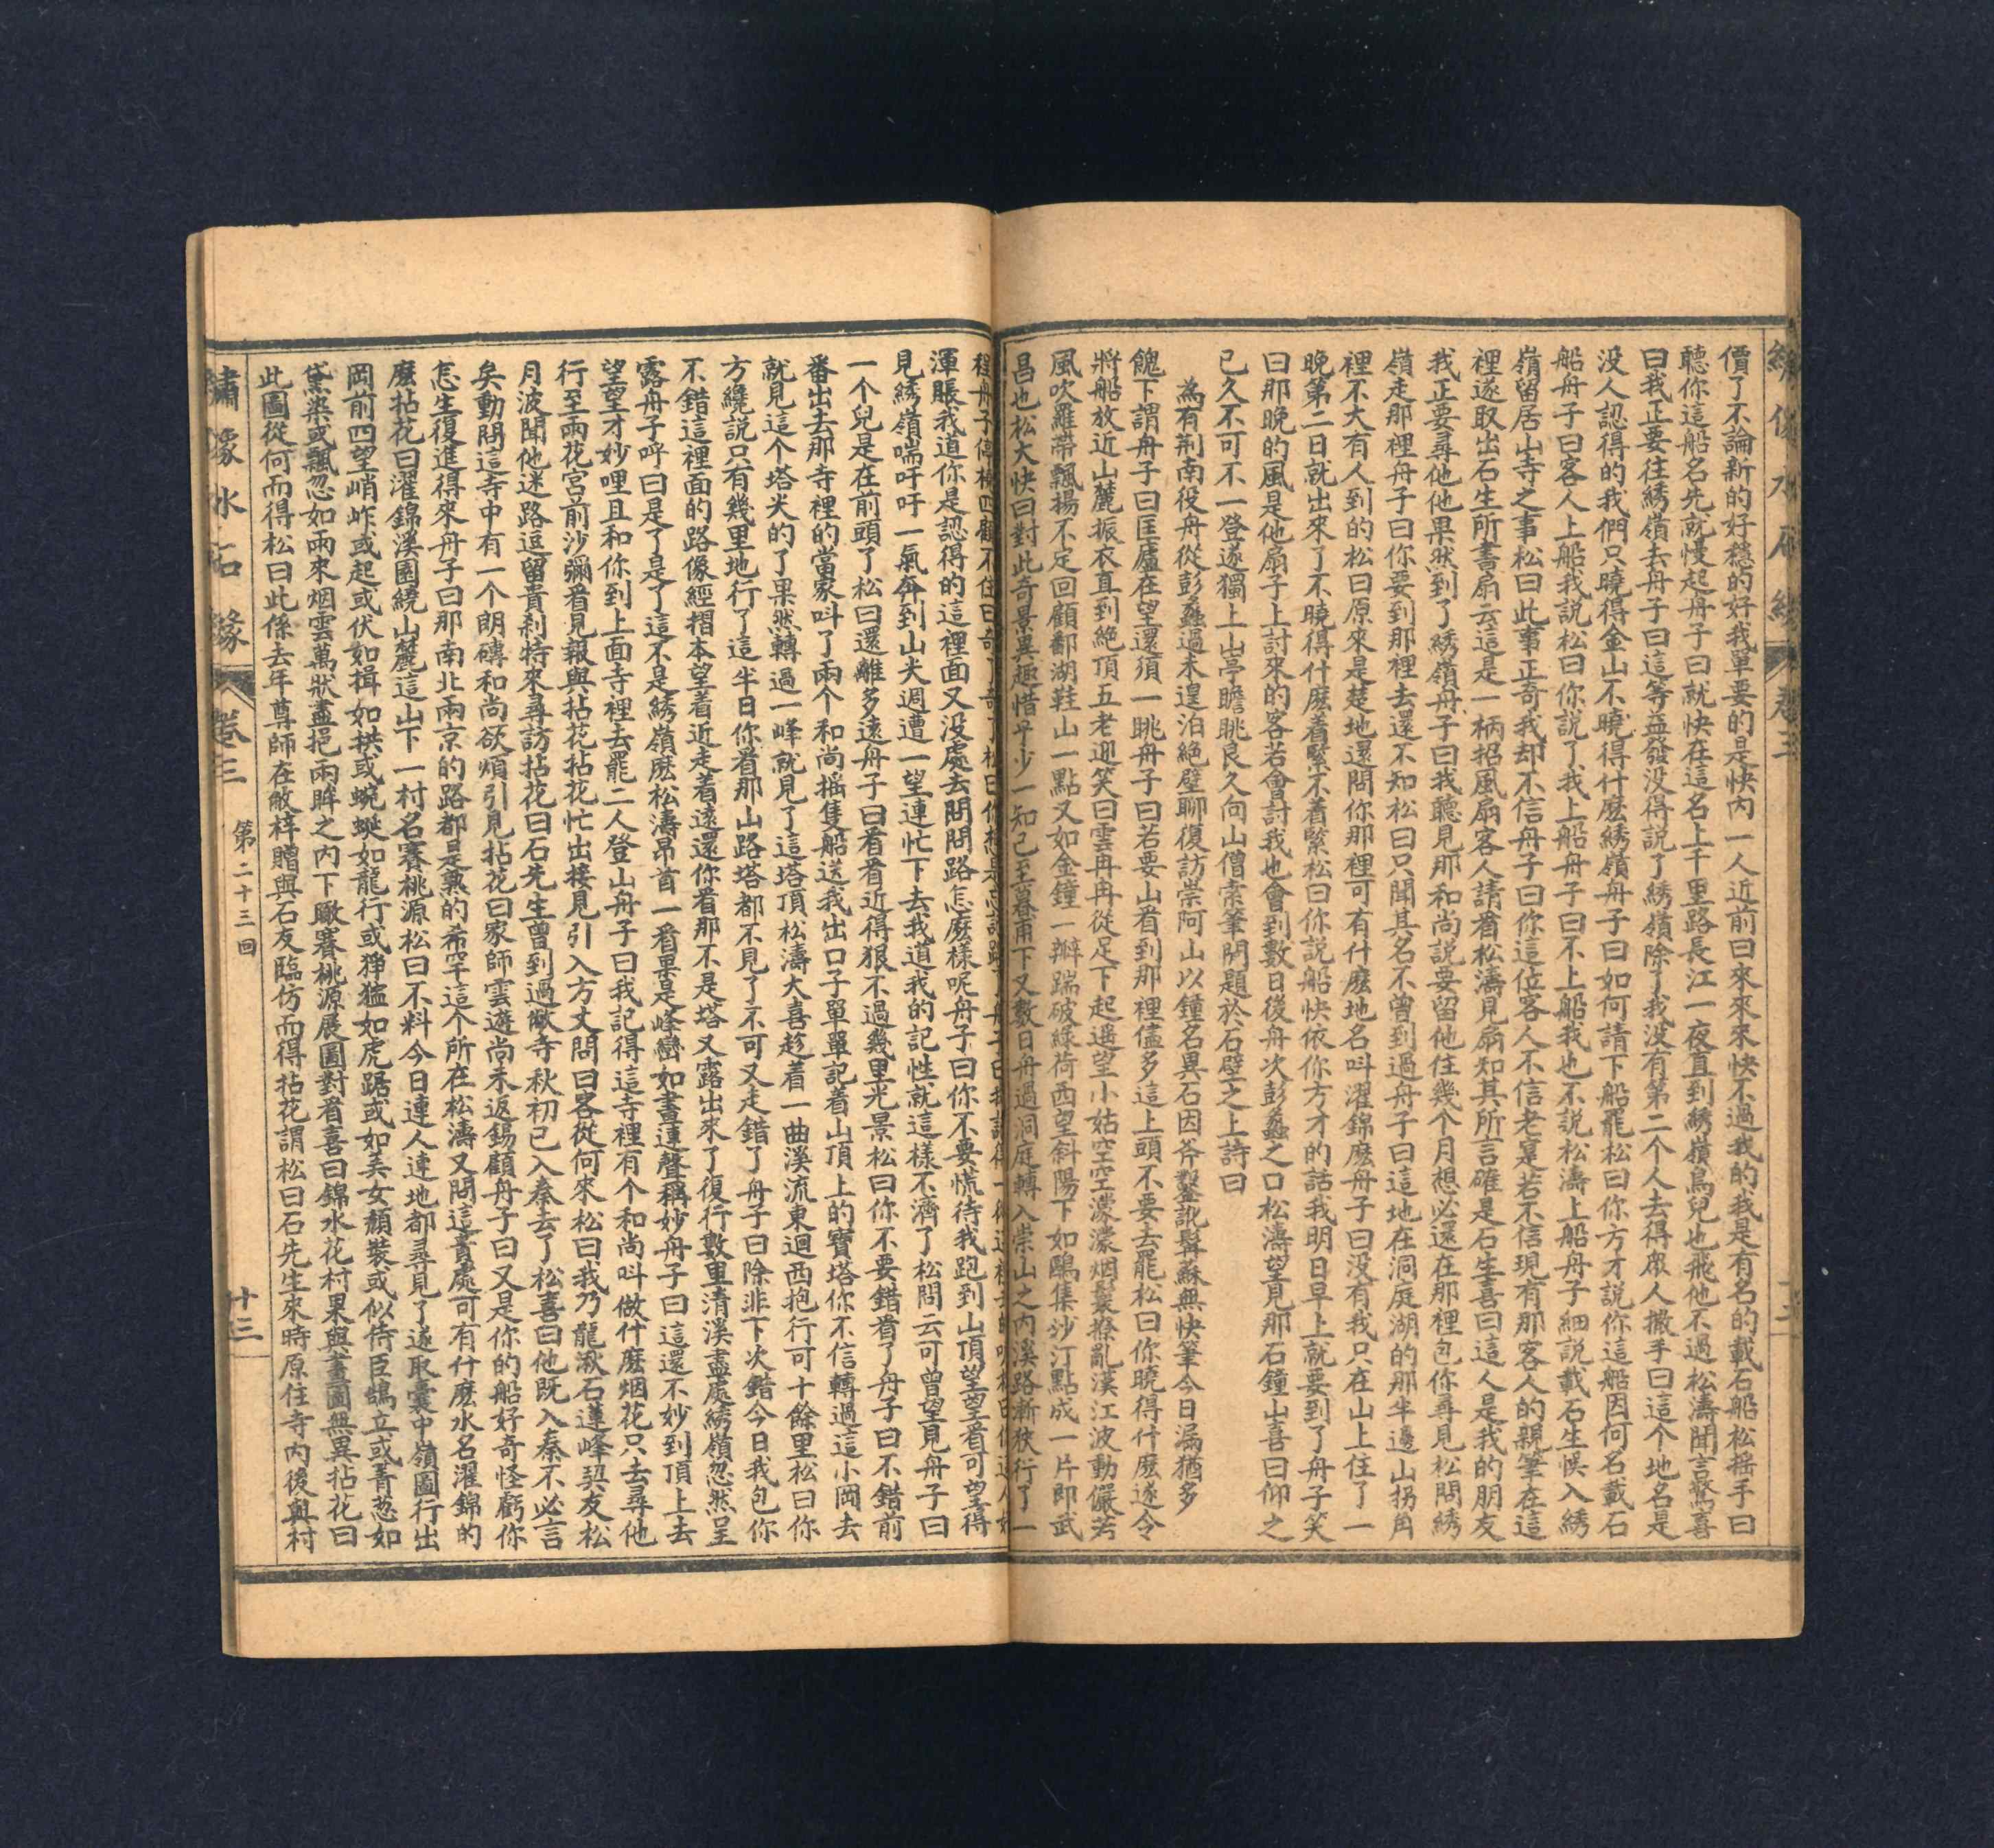 價了不論新的好穩的好我單要的是快內一人近前曰來來來快不過我的我是有名的載石船松摇手曰
聽你這船名先就慢起舟子曰就快在這名上千里路長江一夜直到綉嶺鳥兒也飛他不過松濤聞言驚喜
曰我正要往綉嶺去舟子曰這等益發没得説了綉嶺除了我没有第二个人去得衆人撒手曰這个地名是
没人認得的我們只曉得金山不曉得什麽綉嶺舟子曰如何請下船罷松曰你方才説你這船因何名載石
船舟子曰客人上船我説松曰你説了我上船舟子曰不上船我也不説松濤上船舟子細説載石生悞入綉
嶺留居山寺之事松曰此事正奇我却不信舟子曰你這位客人不信老寔若不信現有那客人的親筆在這
裡遂取出石生所書扇云這是一柄招風扇客人請看松濤見扇知其所言確是石生喜曰這人是我的朋友
我正要尋他他果然到了綉嶺舟子曰我聽見那和尚説要留他住幾个月想必還在那裡包你尋見松問綉
嶺走那裡舟子曰你要到那裡去還不知松曰只聞其名不曾到過舟子曰這地在洞庭湖的那半邊山拐角
裡不大有人到的松曰原來是楚地還問你那裡可有什麽地名呌濯錦麽舟子曰没有我只在山上住了一
晚第二日就出來了不曉得什麽着緊不着緊松曰你説船快依你方才的話我明日早上就要到了舟子笑
曰那晚的風是他扇子上討來的客若會討我也會到數日後舟次彭蠡之口松濤望見那石鐘山喜曰仰之
已久不可不一登遂獨上山亭瞻眺良久向山僧索筆閒題於石壁之上詩曰
為有荆南役舟從彭蠡過未遑泊絶壁聊復訪崇阿山以鐘名異石因斧鑿訛髯蘇無快筆今日漏猶多
餽下謂舟子曰匡廬在望還須一眺舟子曰若要山看到那裡儘多這上頭不要去罷松曰你曉得什麽遂令
將船放近山麓振衣直到絶頂五老迎笑曰雲冉冉從足下起遥望小姑空空濛濛烟鬟撩亂漢江波動儼若
風吹羅帶飄揚不定回顧鄱湖鞋山一點又如金鐘一瓣踹破綠荷西望斜陽下如鷗集沙汀點成一片即武
昌也松大快曰對此奇景異趣惜乎少一知己至暮甫下又數日舟過洞庭轉入崇山之內溪路漸狹行了一
程舟子停橈四顧不住曰
渾賬我道你是認得的這裡面又没處去問問路怎麽樣呢舟子曰你不要慌待我跑到山頂望望看可望得
見綉嶺喘吁吁一氣奔到山尖週遭一望連忙下去我道我的記性就這樣不濟了松問云可曾望見舟子曰
一个兒是在前頭了松曰還離多遠舟子曰看看近得狠不過幾里光景松曰你不要錯看了舟子曰不錯前
番出去那寺裡的當家呌了兩个和尚摇隻船送我出口子單單記着山頂上的寶塔你不信轉過這小岡去
就見這个塔尖的了果然轉過一峰就見了這塔頂松濤大喜趂着一曲溪流東迴西抱行可十餘里松曰你
方纔説只有幾里地行了這半日你看那山路塔都不見了不可又走錯了舟子曰除非下次錯今日我包你
不錯這裡面的路像經摺本望着近走着遠還你看那不是塔又露出來了復行數里清溪盡處綉嶺忽然呈
露舟子呼曰是了是了這不是綉嶺麽松濤昂首一看果是峰巒如畫連聲稱妙舟子曰這還不妙到頂上去
望望才妙哩且和你到上面寺裡去罷二人登山舟子曰我記得這寺裡有个和尚呌做什麽烟花只去尋他
行至雨花宫前沙彌看見報與拈花拈花忙出接見引入方丈問曰客從何來松曰我乃龍湫石蓮峰契友松
月波聞他迷路逗留貴刹特來尋訪拈花曰石先生曾到過敝寺秋初已入秦去了松喜曰他既入秦不必言
矣動問這寺中有一个朗磚和尚欲煩引見拈花曰家師雲遊尚未返錫顧舟子曰又是你的船好奇怪虧你
怎生復進得來舟子曰那南北兩京的路都是熟的希罕這个所在松濤又問這貴處可有什麽水名濯錦的
麽拈花曰濯錦溪圍繞山麓這山下一村名賽桃源松曰不料今日連人連地都尋見了遂取囊中嶺圖行出
岡前四望峭岞或起或伏如揖如拱或蜿蜒如龍行或猙獰如虎踞或如美女頮裝或似侍臣鵠立或青葱如
黛染或飄忽如雨來烟雲萬狀盡挹兩眸之內下瞰賽桃源展圖對看喜曰錦水花村果與畫圖無異拈花曰
此圖從何而得松曰此係去年尊師在敝梓贈與石友臨仿而得拈花謂松曰石先生來時原住寺內後與村
繡像水石緣
卷三
第二十三回
十三